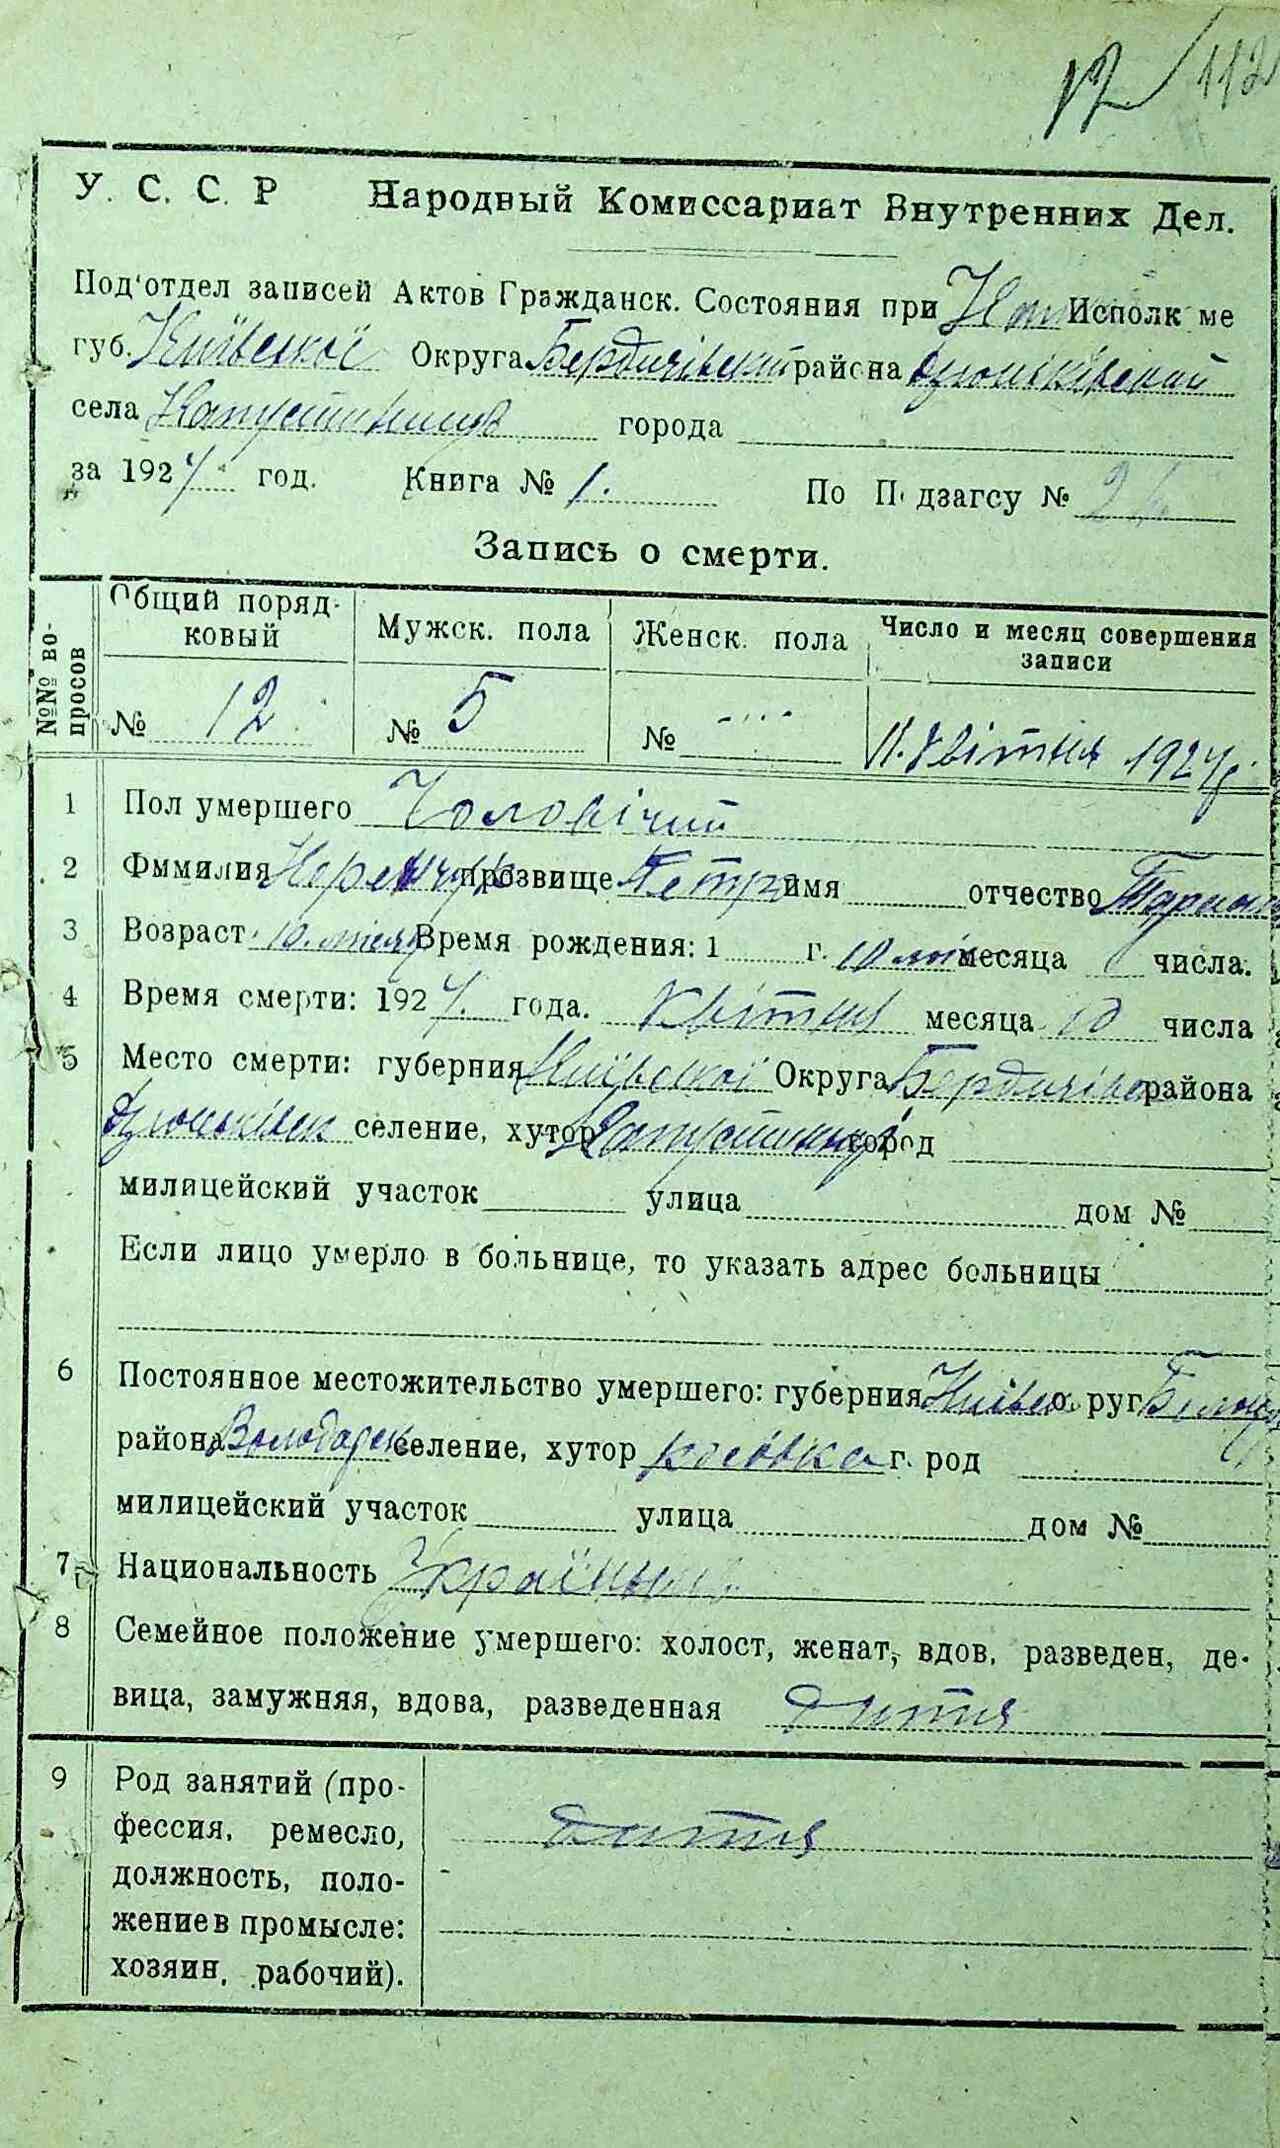 12 112
У. С. С. Р Народный Комиссариат Внутренних Дел.
Под'отдел записей Актов Гражданск. Состояния при Исполк ме
губ. Київської Округа Бердичівський района Дзюньківский
села Капустинцы города
за 1924 год. Книга № 1. По П дзагсу №
Запись о смерти.
№№ во-
просов
Общий поряд-
ковый
Мужск. пола Женск. пола Число и месяц совершения
записи
№ 12 № 5 № 11. Квітня 1924
1 Пол умершего Чоловічий
2 Фммилия прозвище Петро имя отчество
3 Возраст 10. Время рождения: 1 г. 10 месяца числа.
4 Время смерти: 1924. года. Квітня месяца 10 числа
5 Место смерти: губерния Київської Округа района
Дзюньківск селение, хутор город
милицейский участок улица дом №
Если лицо умерло в больнице, то указать адрес больницы
6 Постоянное местожительство умершего: губерния Київск о руг
района Володарск селение, хутор Косовка г род
милицейский участок улица дом №
7 Национальность
8 Семейное положение умершего: холост, женат, вдов, разведен, де-
вица, замужняя, вдова, разведенная дитя
9 Род занятий (про-
фессия, ремесло,
должность, поло-
жение в промысле:
хозяин, рабочий).
дитя